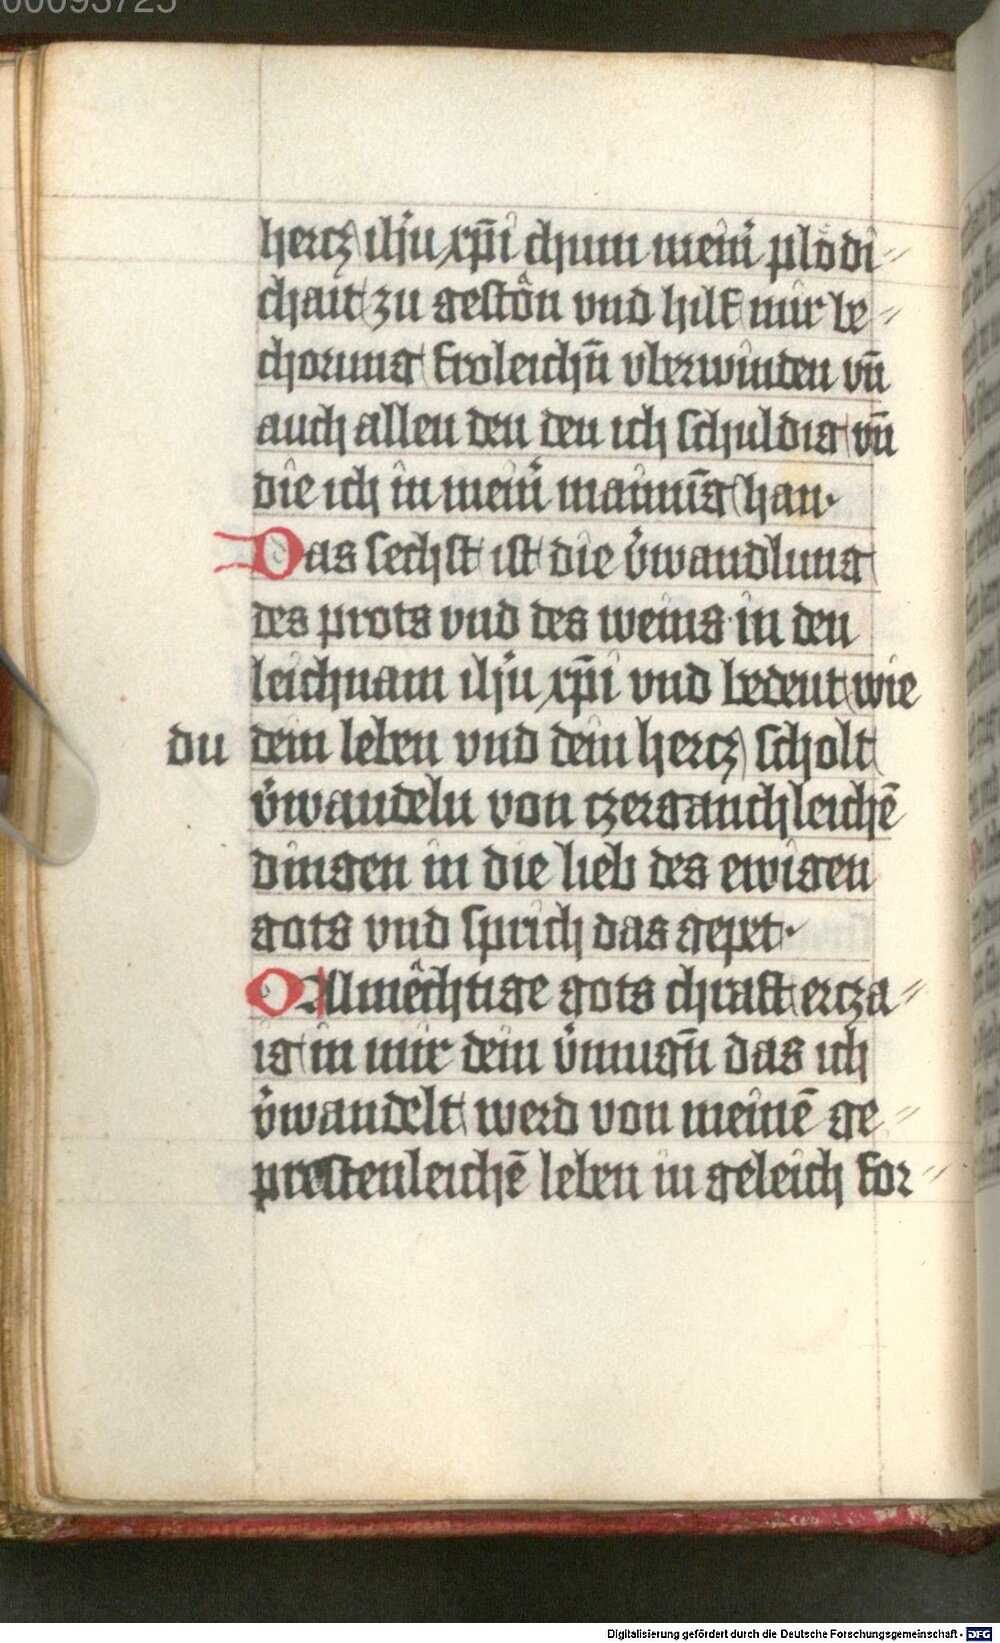 00093725
hercz ihũ xp̃i chum meiñ plodi⸗
chait zu gestôn vnd hilf mir be⸗
chorung froleichn̄ vberwinden vn̄
auch allen den den ich schuldig vn̄
die ich in meiñ mainūg han·
Das sechst ist die v̈wandlung
des prots vnd des weins in den
leichnam ihũ xp̃i vnd bedeut wie
du dein leben vnd dein hercz scholt
v̈wandeln von czerganchleichē
dingen in die lieb des ewigen
gots vnd sprich das gepet·
O Allmêchtige gots chraft ercza⸗
ig in mir dein v̈mugn̄ das ich
v̈wandelt werd von meinē ge⸗
prestenleichē leben in geleich for⸗
Digitalisierung gefördert durch die Deutsche Forschungsgemeinschaft - DFG